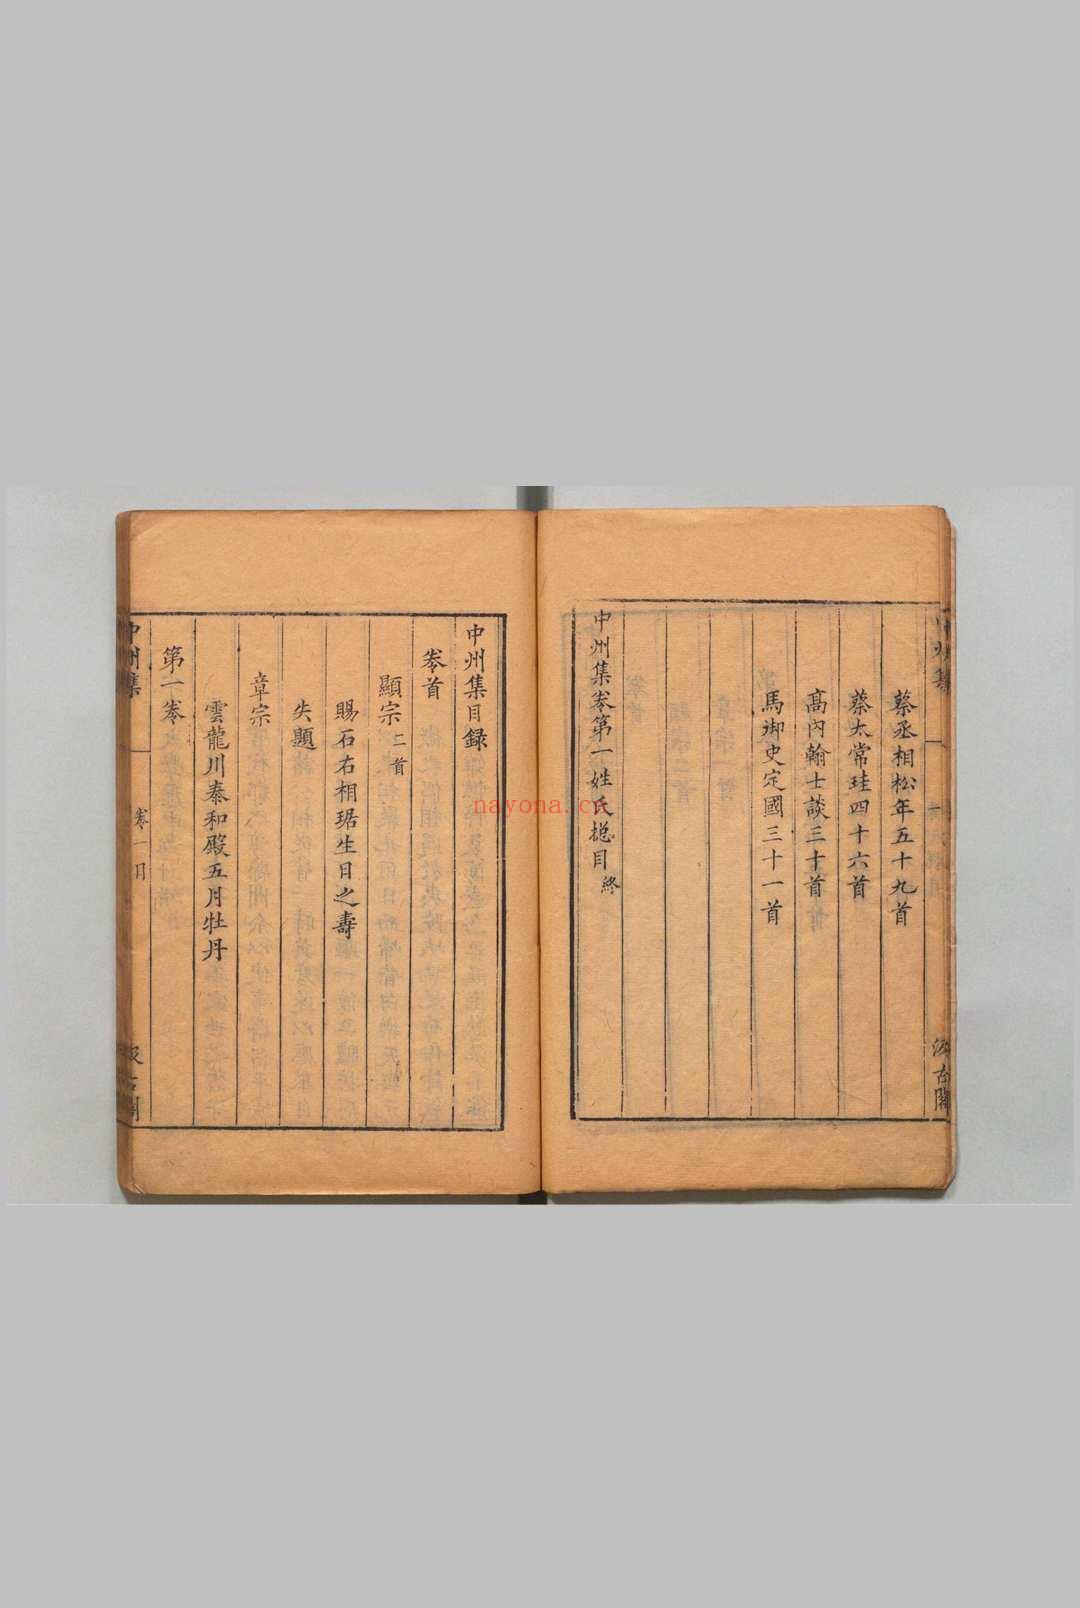 蔡丞相松年五十九首
蔡太常珪四十六首
髙内翰士談三十首
馬御史定國三十一首
中州集卷第一姓氏摠目終
汲古閣
中州集目録
卷首
顯宗二首
賜石右相琚生日之壽
失題
章宗
雲龍川泰和殿五月牡丹
第一卷
中州集
卷一目
nayona.cn